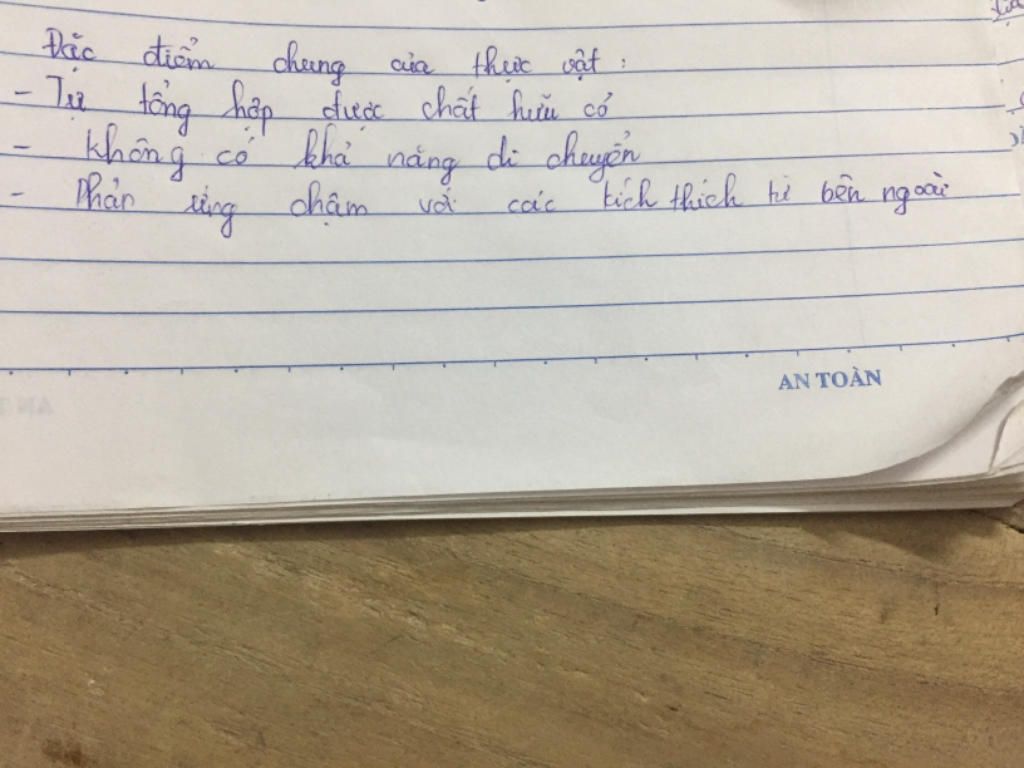 Đặc điểm chung của thực vật :
- Tự tổng hợp được chất hữu cơ
- không có khả năng di chuyển
- Phản ứng chậm với các kích thích từ bên ngoài
AN TOÀN